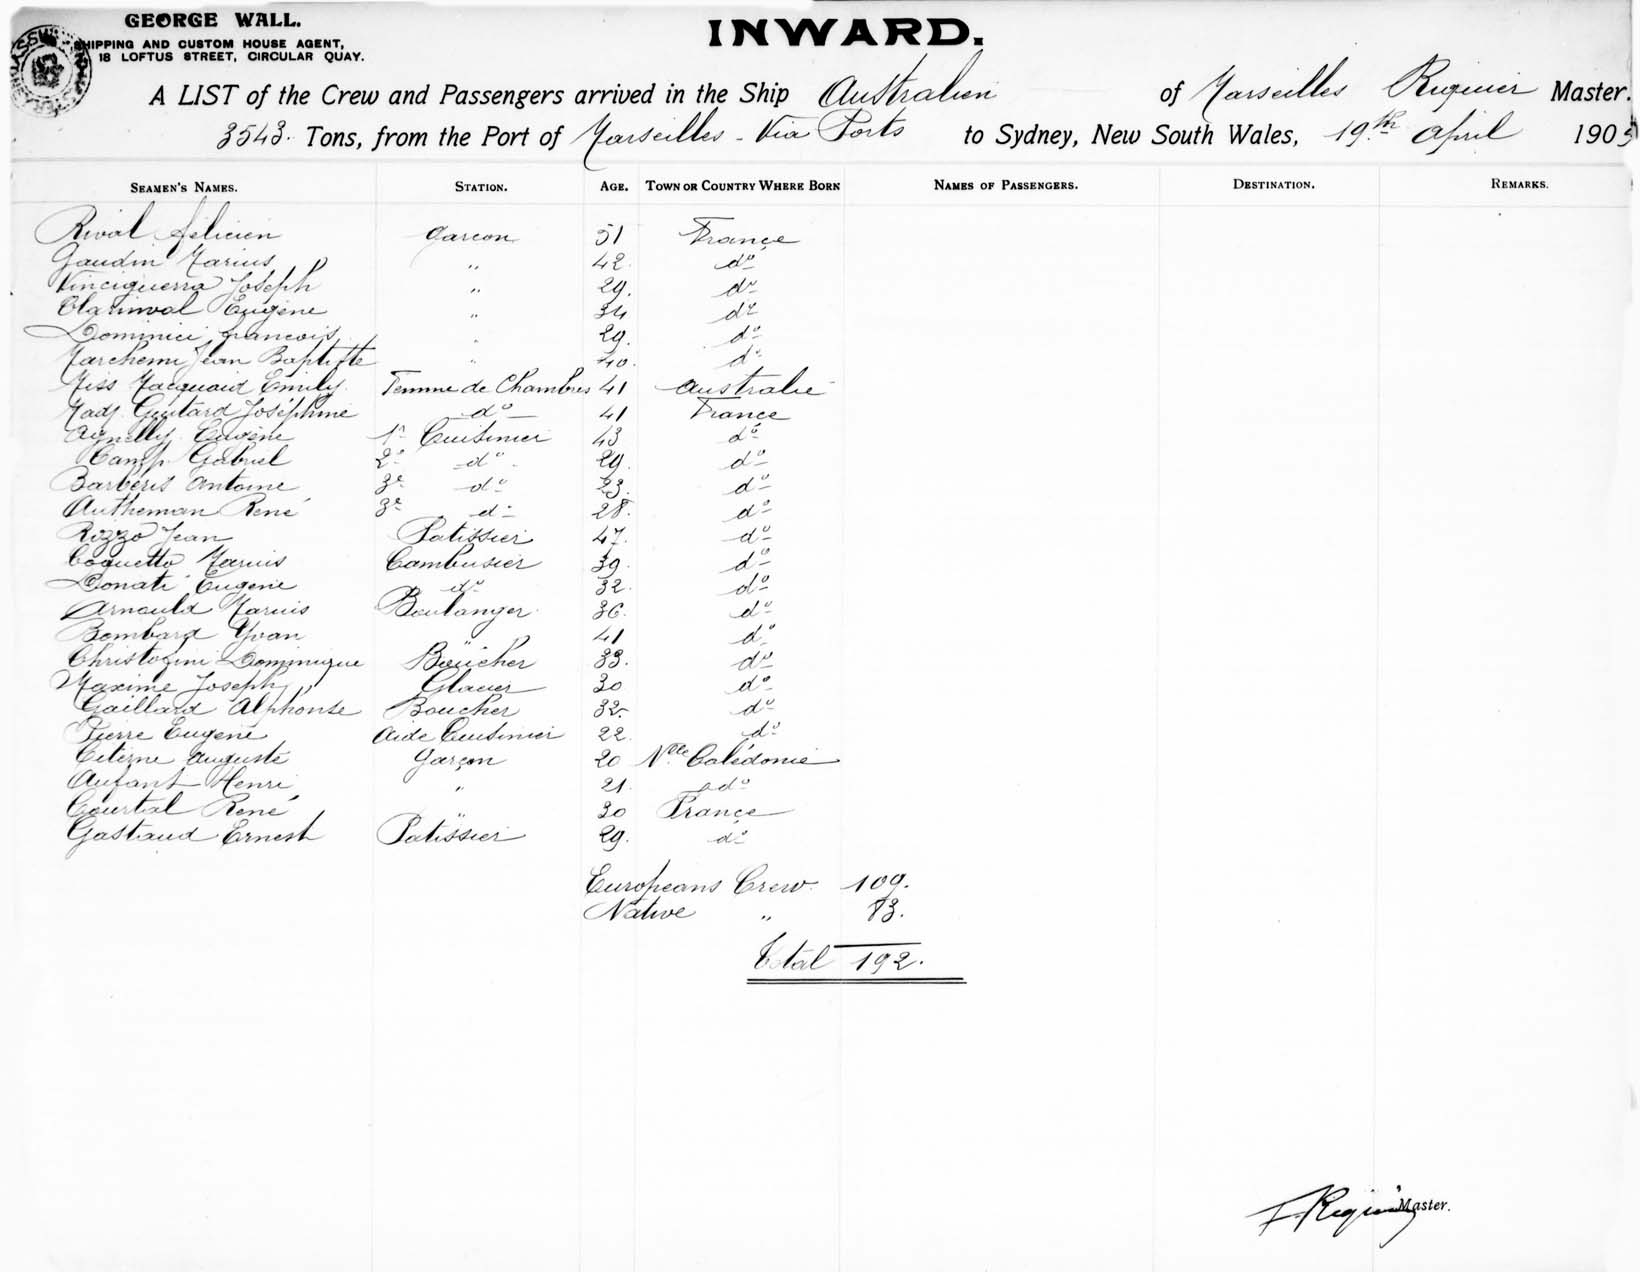 GEORGE WALL.
SHIPPING AND CUSTOM HOUSE AGENT,
18 LOFTUS STREET, CIRCULAR QUAY.
INWARD.
A LIST of the Crew and Passengers arrived in the Ship Australien of Marseilles Riquier Master.
3543. Tons, from the Port of Marseilles - Via Ports to Sydney, New South Wales, 19th April 1905
SEAMEN'S NAMES. STATION. AGE. TOWN OR COUNTRY WHERE BORN NAMES OF PASSENGERS. DESTINATION. REMARKS.
Rival Félicien garcon 51 France
Gaudin Marius " 42. do
Vinciguerra Joseph " 29. do
Clarinval Eugène " 34 do
Dominici francois " 29. do
Jean Baptiste " 40. do
Miss Macquaid Emily. Femme de Chambres 41 Australie
Madj. Guitard Joséphine do 41 France
Agnelly Eugène 1r Cuisinier 43 do
Camp. Gabriel 2e do 29. do
Barberis Antoine 3e do 23. do
Autheman René 3e do 28. do
Rozzo Jean Patissier 47. do
Coquetto Marius Cambusier 39. do
Donati Eugène do 32. do
Arnauld Marius Boulanger 36. do
Bombard Yvan " 41 do
Christofini Dominique Boucher 33. do
Maxime Joseph Glacier 30 do
Gaillard Alphonse Boucher 32. do
Pierre Eugène Aide Cuisinier 22. do
Citerne Auguste Garçon 20 Nlle Calédonie
Aufant Henri " 21. do
Courtial René " 30 France
Gastaud Ernest Patissier 29. do
Europeans Crew. 109.
Native " 83.
Total 192.
Riquier Master.